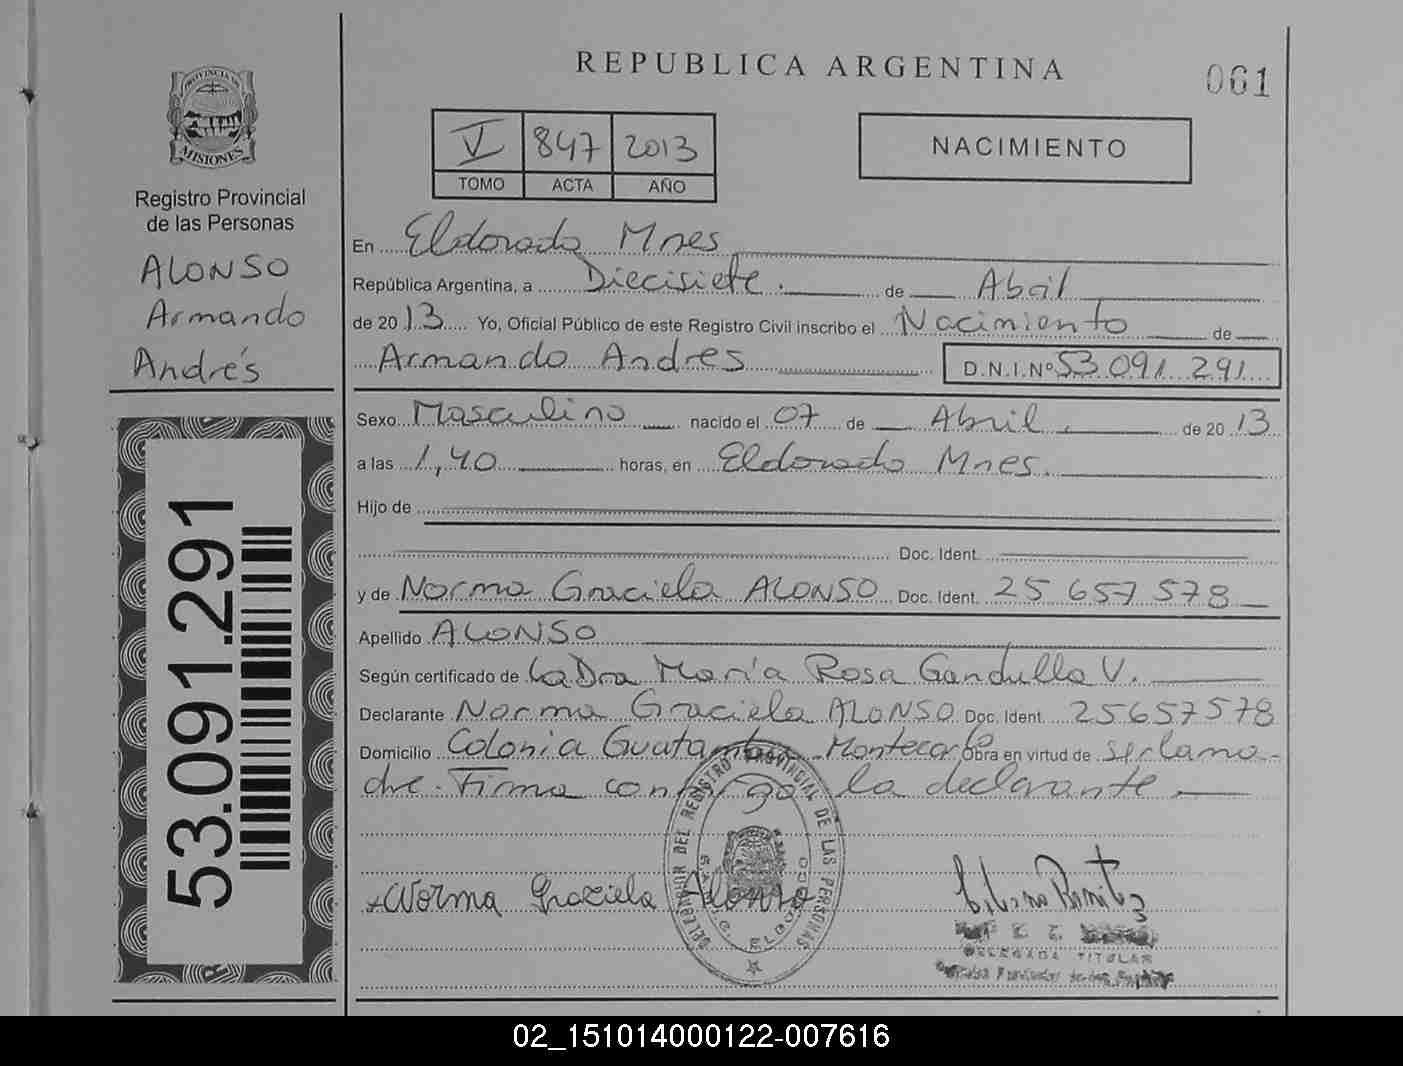 REPUBLICA ARGENTINA
061
PROVINCIA DE
MISIONES
Registro Provincial
de las Personas
ALONSO
Armando
Andrés
53.091.291
V 847 2013
TOMO ACTA AÑO
NACIMIENTO
En Eldorado Mnes
República Argentina, a Diecisiete. de Abril
de 2013 Yo, Oficial Público de este Registro Civil inscribo el Nacimiento de
Armando Andres D.N.I.Nº 53 091 291
Sexo Masculino nacido el 07 de Abril. de 2013
a las 1,40 horas, en Eldorado Mnes.
Hijo de
Doc. Ident.
y de Norma Graciela ALONSO Doc. Ident. 25 657 578
Apellido ALONSO
Según certificado de La Dra María Rosa Gandulla V.
Declarante Norma Graciela ALONSO Doc. Ident. 25657578
Domicilio Colonia Guatambú Montecarlo Obra en virtud de ser la ma-
dre. Firma conmigo la declarante
Norma Graciela Alonso
DEL REGISTRO PROVINCIAL DE LAS PERSONAS
ELDORADO
DELEGADA TITULAR
02_151014000122-007616